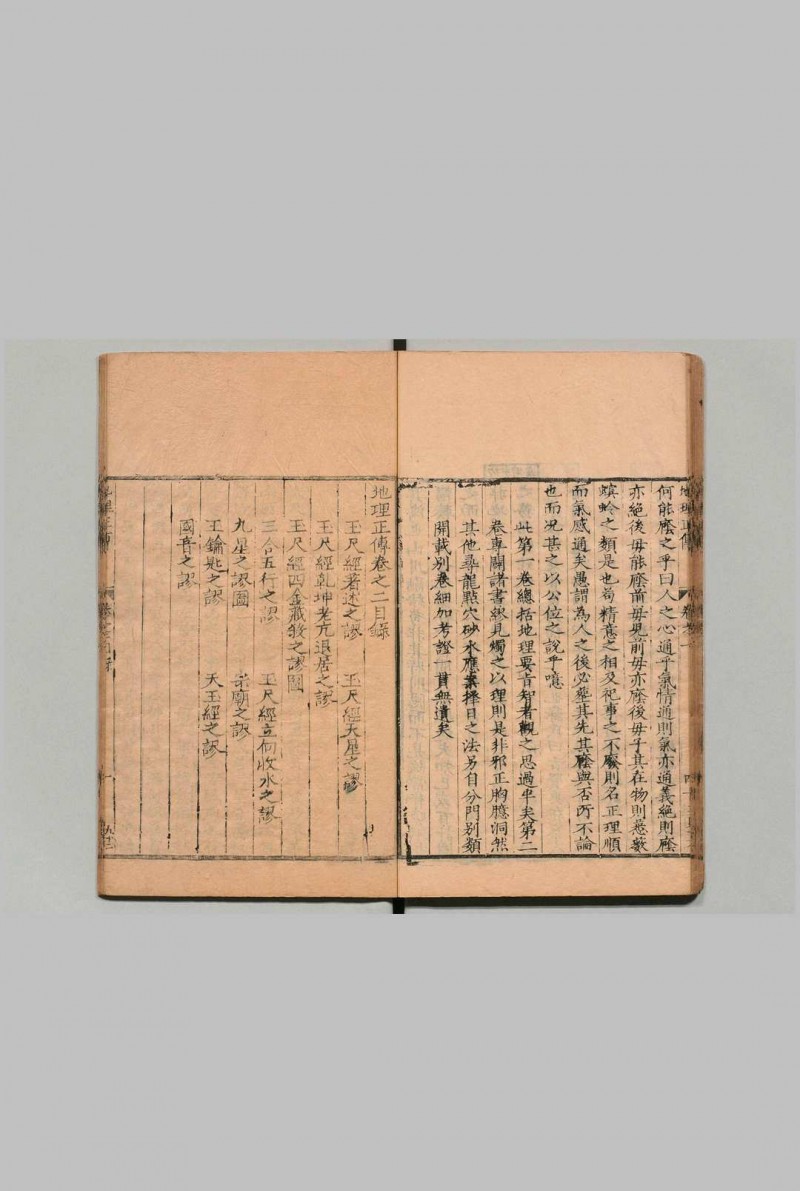 何能廕之乎曰人之心通乎氣情通則氣亦通義絕則廕
亦絕後毋能廕前毋見前毋亦廕後毋子其在物則慝嶔
螟蛉之類是也苟精意之相及祀事之不廢則名正理順
而氣感通矣愚謂為人之後必塟其先其廕與否所不論
也而况甚之以公位之說乎噫
此第一卷總括地理要旨智者觀之思過半矣第二
卷專闢諸書繆見燭之以理則是非邪正胸臆洞然
其他尋龍點穴砂水應案擇日之法另自分門別類
開載別卷細加考證一貫無遺矣
地理正傳卷之二目錄
玉尺經著述之謬 玉尺經天星之謬
玉尺經乾坤老亢退居之謬
玉尺經四金藏殺之謬圖
三合五行之謬 玉尺經立向收水之謬
九星之謬圖 宗廟之謬
玉鑰匙之謬 天玉經之謬
國音之謬